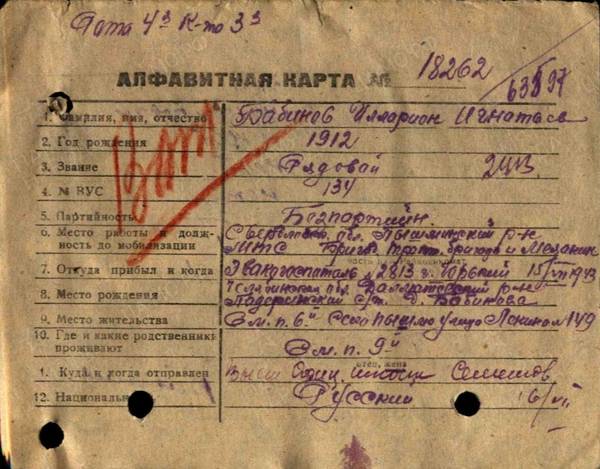 Рота 4я К-то 3я
АЛФАВИТНАЯ КАРТА № 18262
63897
1. Фамилия, имя, отчество Бабинов Илларион Игнатьев
2. Год рождения 1912
3. Звание Рядовой
4. № ВУС 134
5. Партийность Безпартийн
6. Место работы и долж-
ность до мобилизации Свердловск. обл. Пышминский р-н
МТС Бригад. тракт. бригады и Механик
7. Откуда прибыл и когда Эвакогоспиталь 2813 г. Горький 15/VII 1943
8. Место рождения Челябинская обл. Далматовский р-н
д. Бабинова
9. Место жительства См. п. 6й Село Пышма улица Ленина 149
10. Где и какие родственники
проживают См. п. 9й
отец, жена
1. Куда и когда отправлен
12. Националь Русский